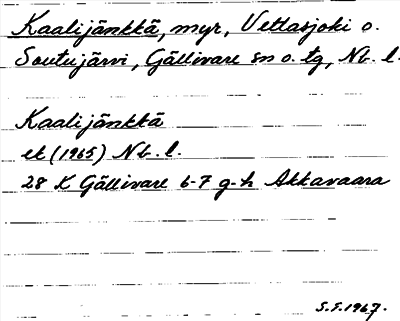 Kaalijänkkä, myr, Vettasjoki o.
Soutujärvi, Gällivare sn o. tg, Nb. l.
Kaalijänkkä
ek (1965) Nb. l.
28 K Gällivare 6-7 g-h Akkavaara
S.F. 1967.